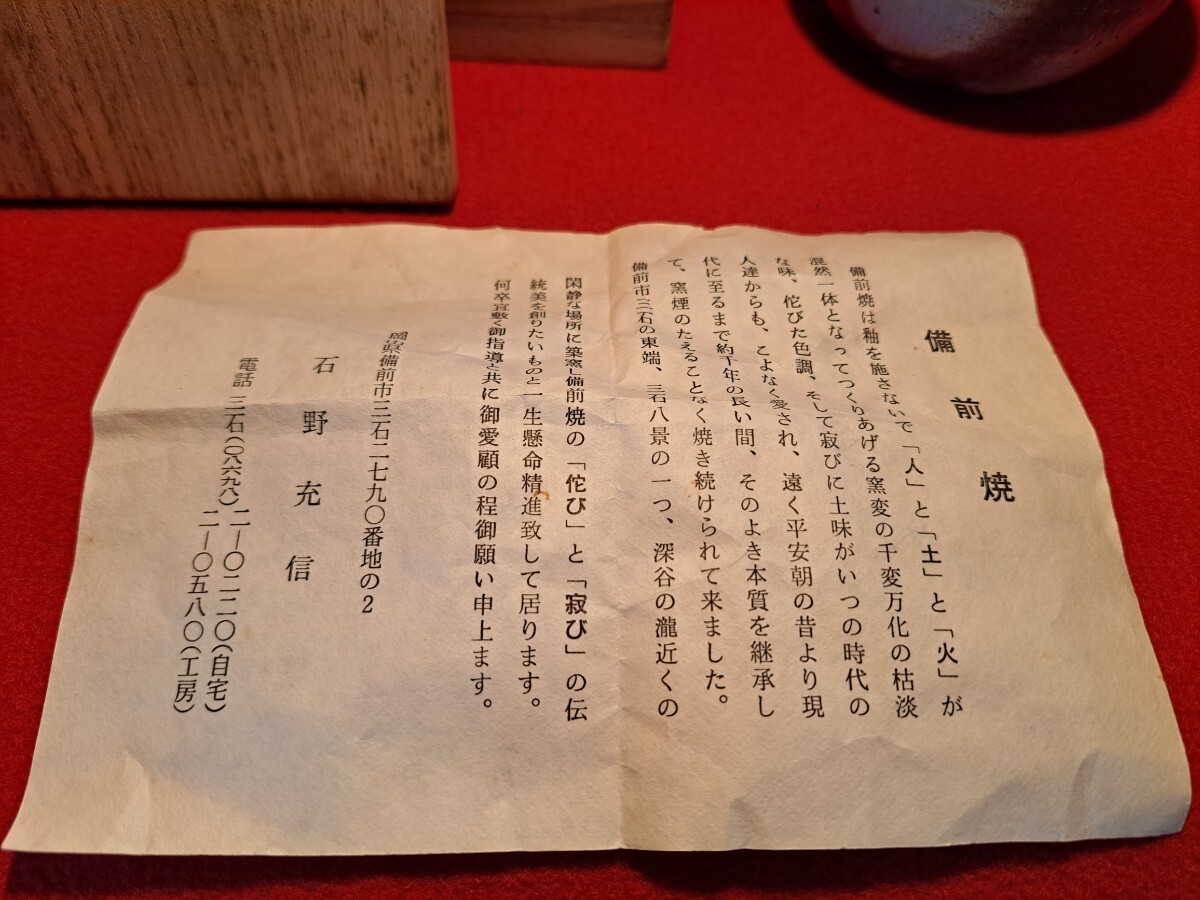 備前焼
備前焼は釉を施さないで「人」と「土」と「火」が
混然一体となってつくりあげる窯変の千変万化の枯淡
な味、佗びた色調、そして寂びに土味がいつの時代の
人達からも、こよなく愛され、遠く平安朝の昔より現
代に至るまで約千年の長い間、そのよき本質を継承し
て、窯煙のたえることなく焼き続けられて来ました。
備前市三石の東端、三石八景の一つ、深谷の瀧近くの
閑静な場所に築窯し備前焼の「佗び」と「寂び」の伝
統美を創りたいものと一生懸命精進致して居ります。
何卒宜敷く御指導と共に御愛顧の程御願い申上ます。
岡山県備前市三石二七九〇番地の2
石野充信
電話 三石(〇八六九八)二―〇二二〇(自宅)
二―〇五八〇(工房)